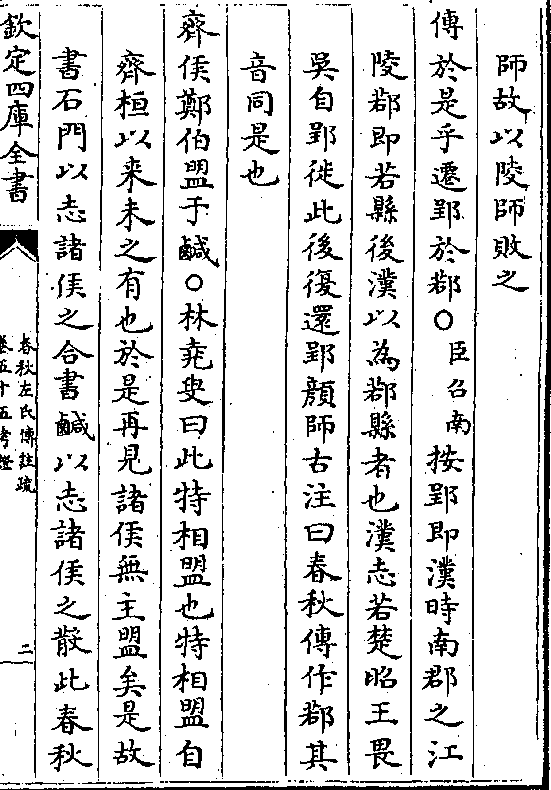 師故以陵師敗之
傳於是乎遷郢於鄀○臣召南按郢即漢時南郡之江
陵鄀即若縣後漢以為鄀縣者也漢志若楚昭王畏
吳自郢徙此後復還郢顏師古注曰春秋傳作鄀其
音同是也
齊侯鄭伯盟于鹹○林堯叟曰此特相盟也特相盟自
齊桓以来未之有也於是再見諸侯無主盟矣是故
書石門以志諸侯之合書鹹以志諸侯之散此春秋
欽定四庫全書
春秋左氏傳註疏
卷五十五考證
二